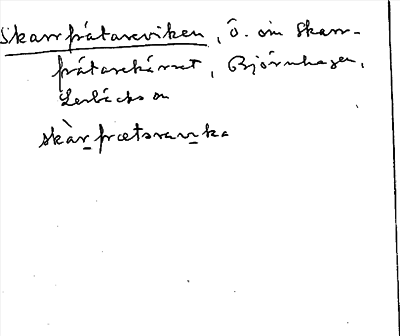 Skarrpåtareviken, Ö. om Skarr-
påtarekärret, Björnhagen,
Lerbäcks sn
skàr pœtsravika